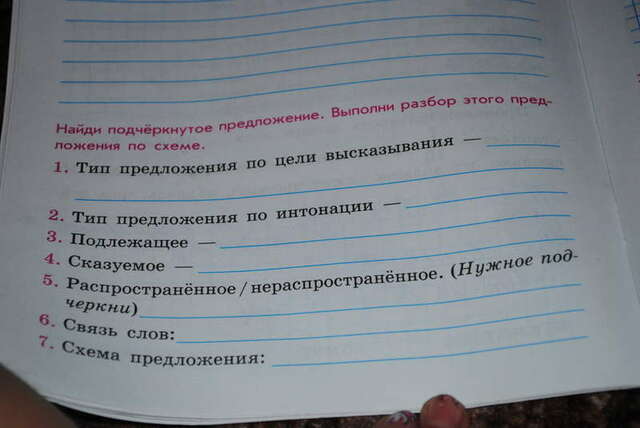 Найди подчёркнутое предложение. Выполни разбор этого пред-
ложения по схеме.
1. Тип предложения по цели высказывания —
2. Тип предложения по интонации —
3. Подлежащее —
4. Сказуемое —
5. Распространённое / нераспространённое. (Нужное под-
черкни)
6. Связь слов:
7. Схема предложения: